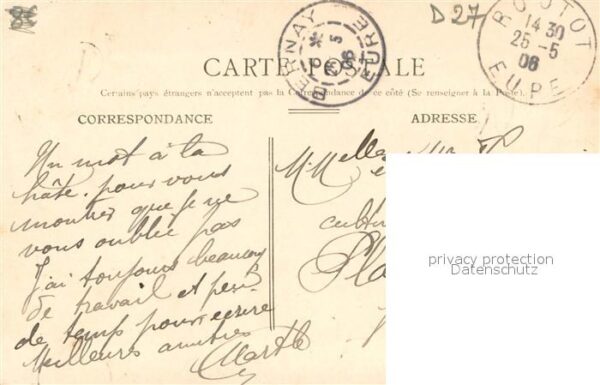 D 27
BERNAY
EURE
25
5
06
ROUTOT
14 30
25 -5
06
EURE
CARTE POSTALE
Certains pays étrangers n'acceptent pas la Correspondance de ce côté (Se renseigner à la Poste).
CORRESPONDANCE
ADRESSE
Un mot à la
hâte pour vous
montrer que je ne
vous oublie pas
J'ai toujours beaucoup
de travail et peu
de temps pour ecrire
Meilleures amities
Marthe
cultiv
Pla
privacy protection
Datenschutz